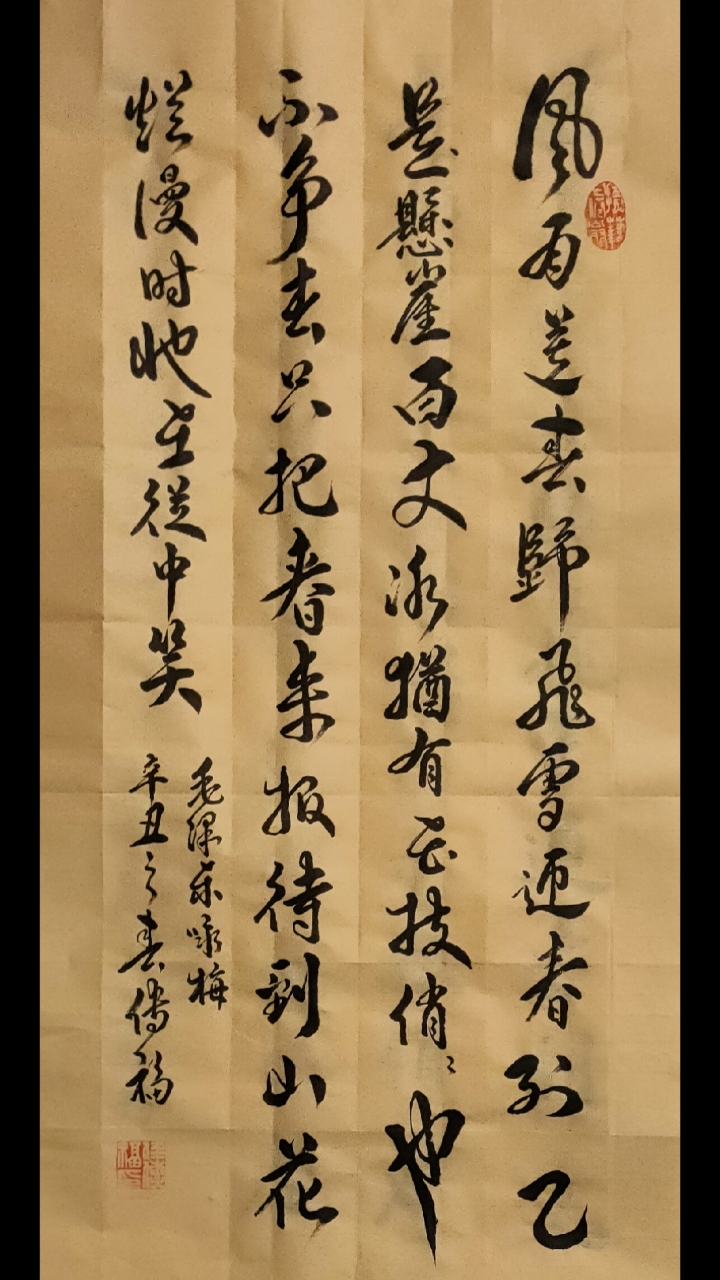 風雨送春歸飛雪迎春到已
是懸崖百丈冰猶有花枝俏々也
不争春只把春来报待到山花
烂漫时她在從中笑
毛泽东咏梅
辛丑之春傳福